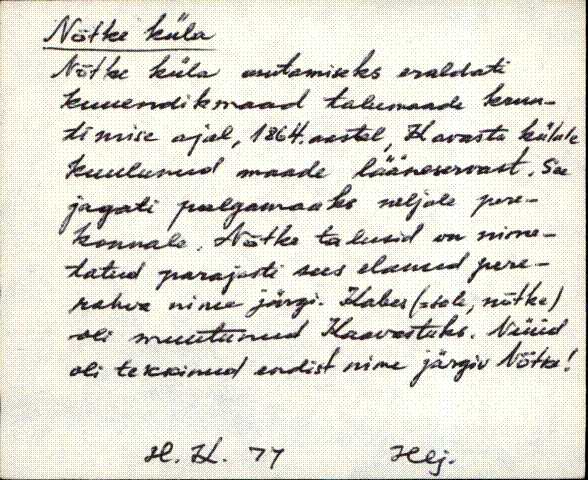 Nõtke küla
Nõtke küla asutamiseks eraldati
kuuendikmaad talumaade krun-
timise ajal, 1864. aastal, Haavastu külale
kuulunud maade lääneservast. See
jagati palgamaaks neljale pere-
konnale. Nõtke talusid on nime-
tatud parajasti sees elanud pere-
rahva nime järgi. Habes (=sale, nõtke)
oli muutunud Haavastuks. Nüüd
oli tekkinud endist nime järgiv Nõtke!
H. K. 77 Hlj.